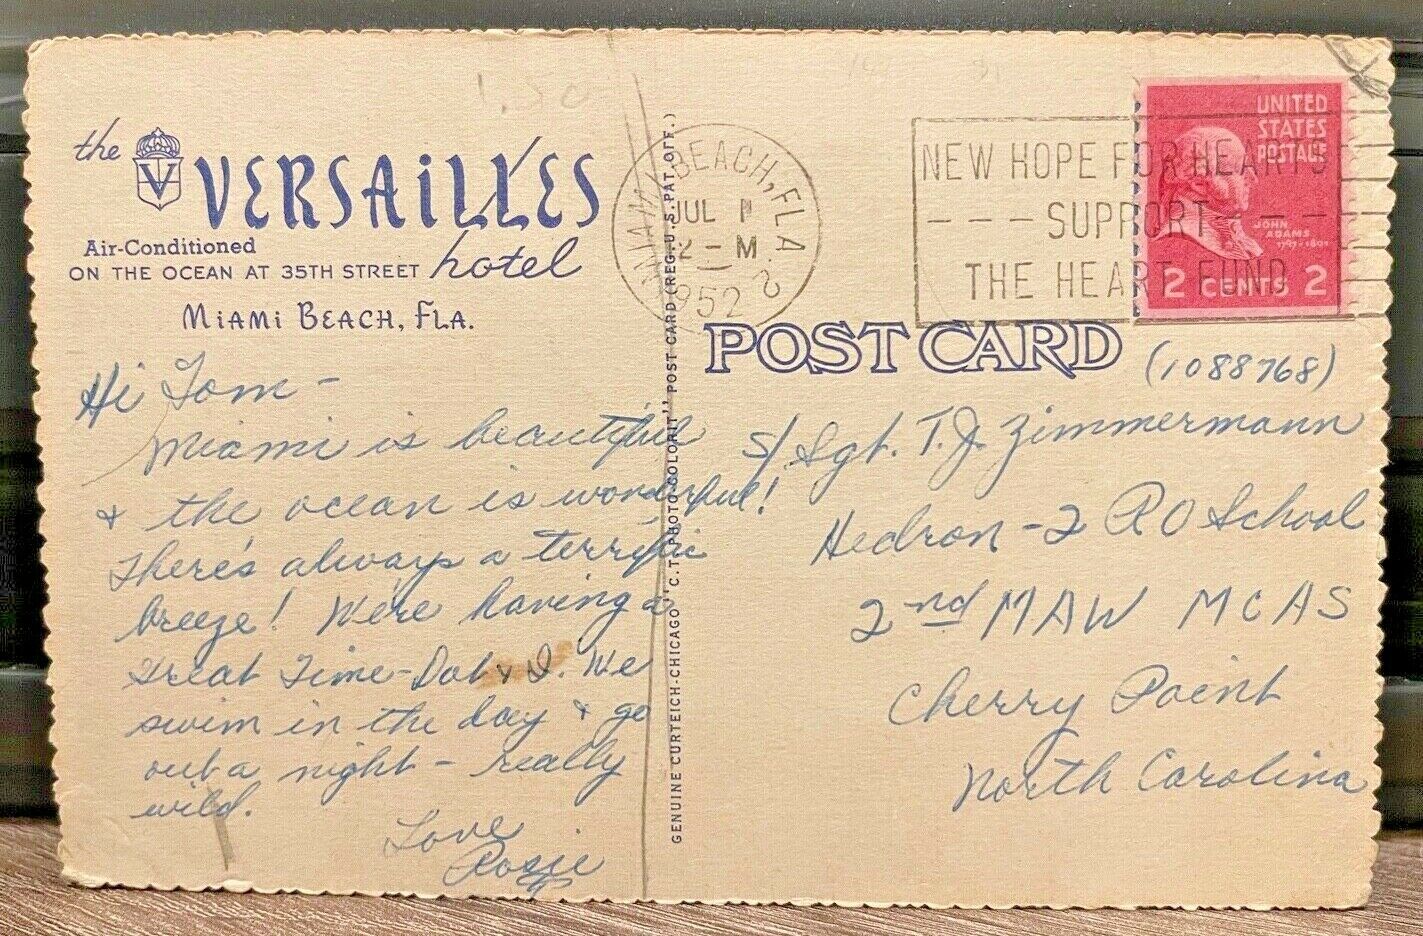 1.50
the VERSAILLES
Air-Conditioned
ON THE OCEAN AT 35TH STREET hotel
MIAMI BEACH, FLA.
MIAMI BEACH, FLA. 2
JUL 1
2 - M
1952
NEW HOPE FOR HEARTS
- - - SUPPORT - - -
THE HEART FUND
UNITED
STATES
POSTAGE
JOHN
ADAMS
1797-1801
2 CENTS 2
POST CARD
GENUINE CURTEICH-CHICAGO "C.T. PHOTO-COLORIT" POST CARD (REG. U.S. PAT. OFF.)
Hi Tom -
Miami is beautiful
& the ocean is wonderful!
There's always a terrific
breeze! We're having a
Great Time - Dot & I. We
swim in the day & go
out a night - really
wild.
Love
Rosie
(1088768)
S/Sgt. T. J. Zimmermann
Hedron - 2 RO School
2nd MAW MCAS
Cherry Point
North Carolina